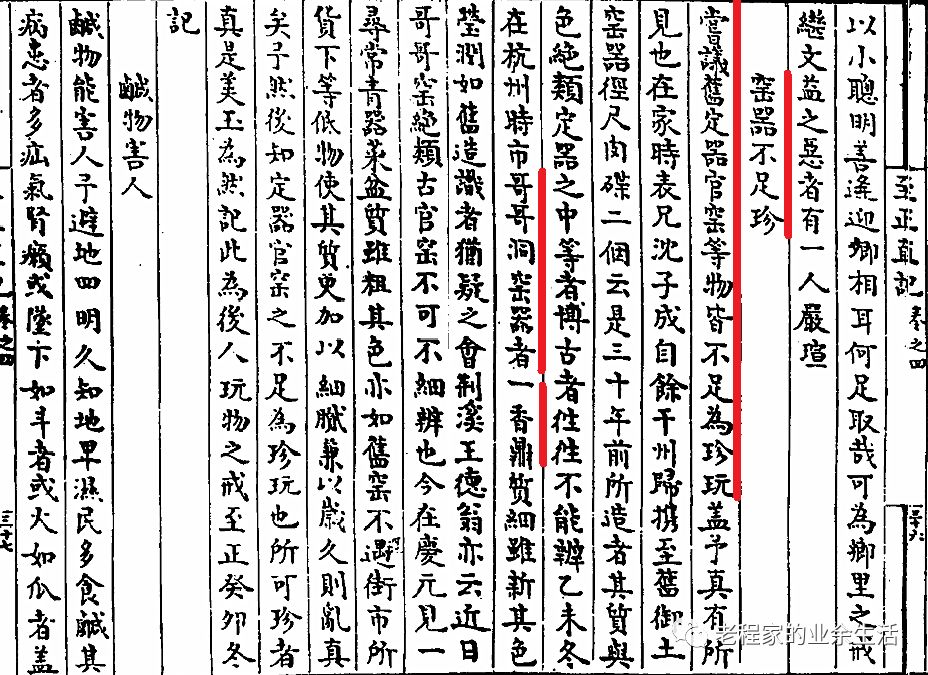 至正直記 卷之四
以小聰明善逢迎卿相耳何足取哉可為鄉里之戒
繼文益之惡者有一人嚴瑄
窑器不足珍
嘗議舊定器官窑等物皆不足為珍玩蓋予真有所
見也在家時表兄沈子成自餘干州歸携至舊御土
窑器徑尺肉碟二個云是三十年前所造者其質與
色絶類定器之中等者博古者徃徃不能辨乙未冬
在杭州時市哥哥洞窑器者一香鼎質細雖新其色
瑩潤如舊造識者猶疑之會荆溪王德翁亦云近日
哥哥窑絶類古官窑不可不細辨也今在慶元見一
尋常青器菜盆質雖粗其色亦如舊窑不過街市所
貨下等低物使其質更加以細膩兼以歲久則亂真
矣予然後知定器官窑之不足為珍玩也所可珍者
真是美玉為然記此為後人玩物之戒至正癸卯冬
記
鹹物害人
鹹物能害人予避地四明久知地卑濕民多食鹹其
病恚者多疝氣腎癩或墜下如斗者或大如瓜者蓋
卷之四
三十七
老程家的业余生活